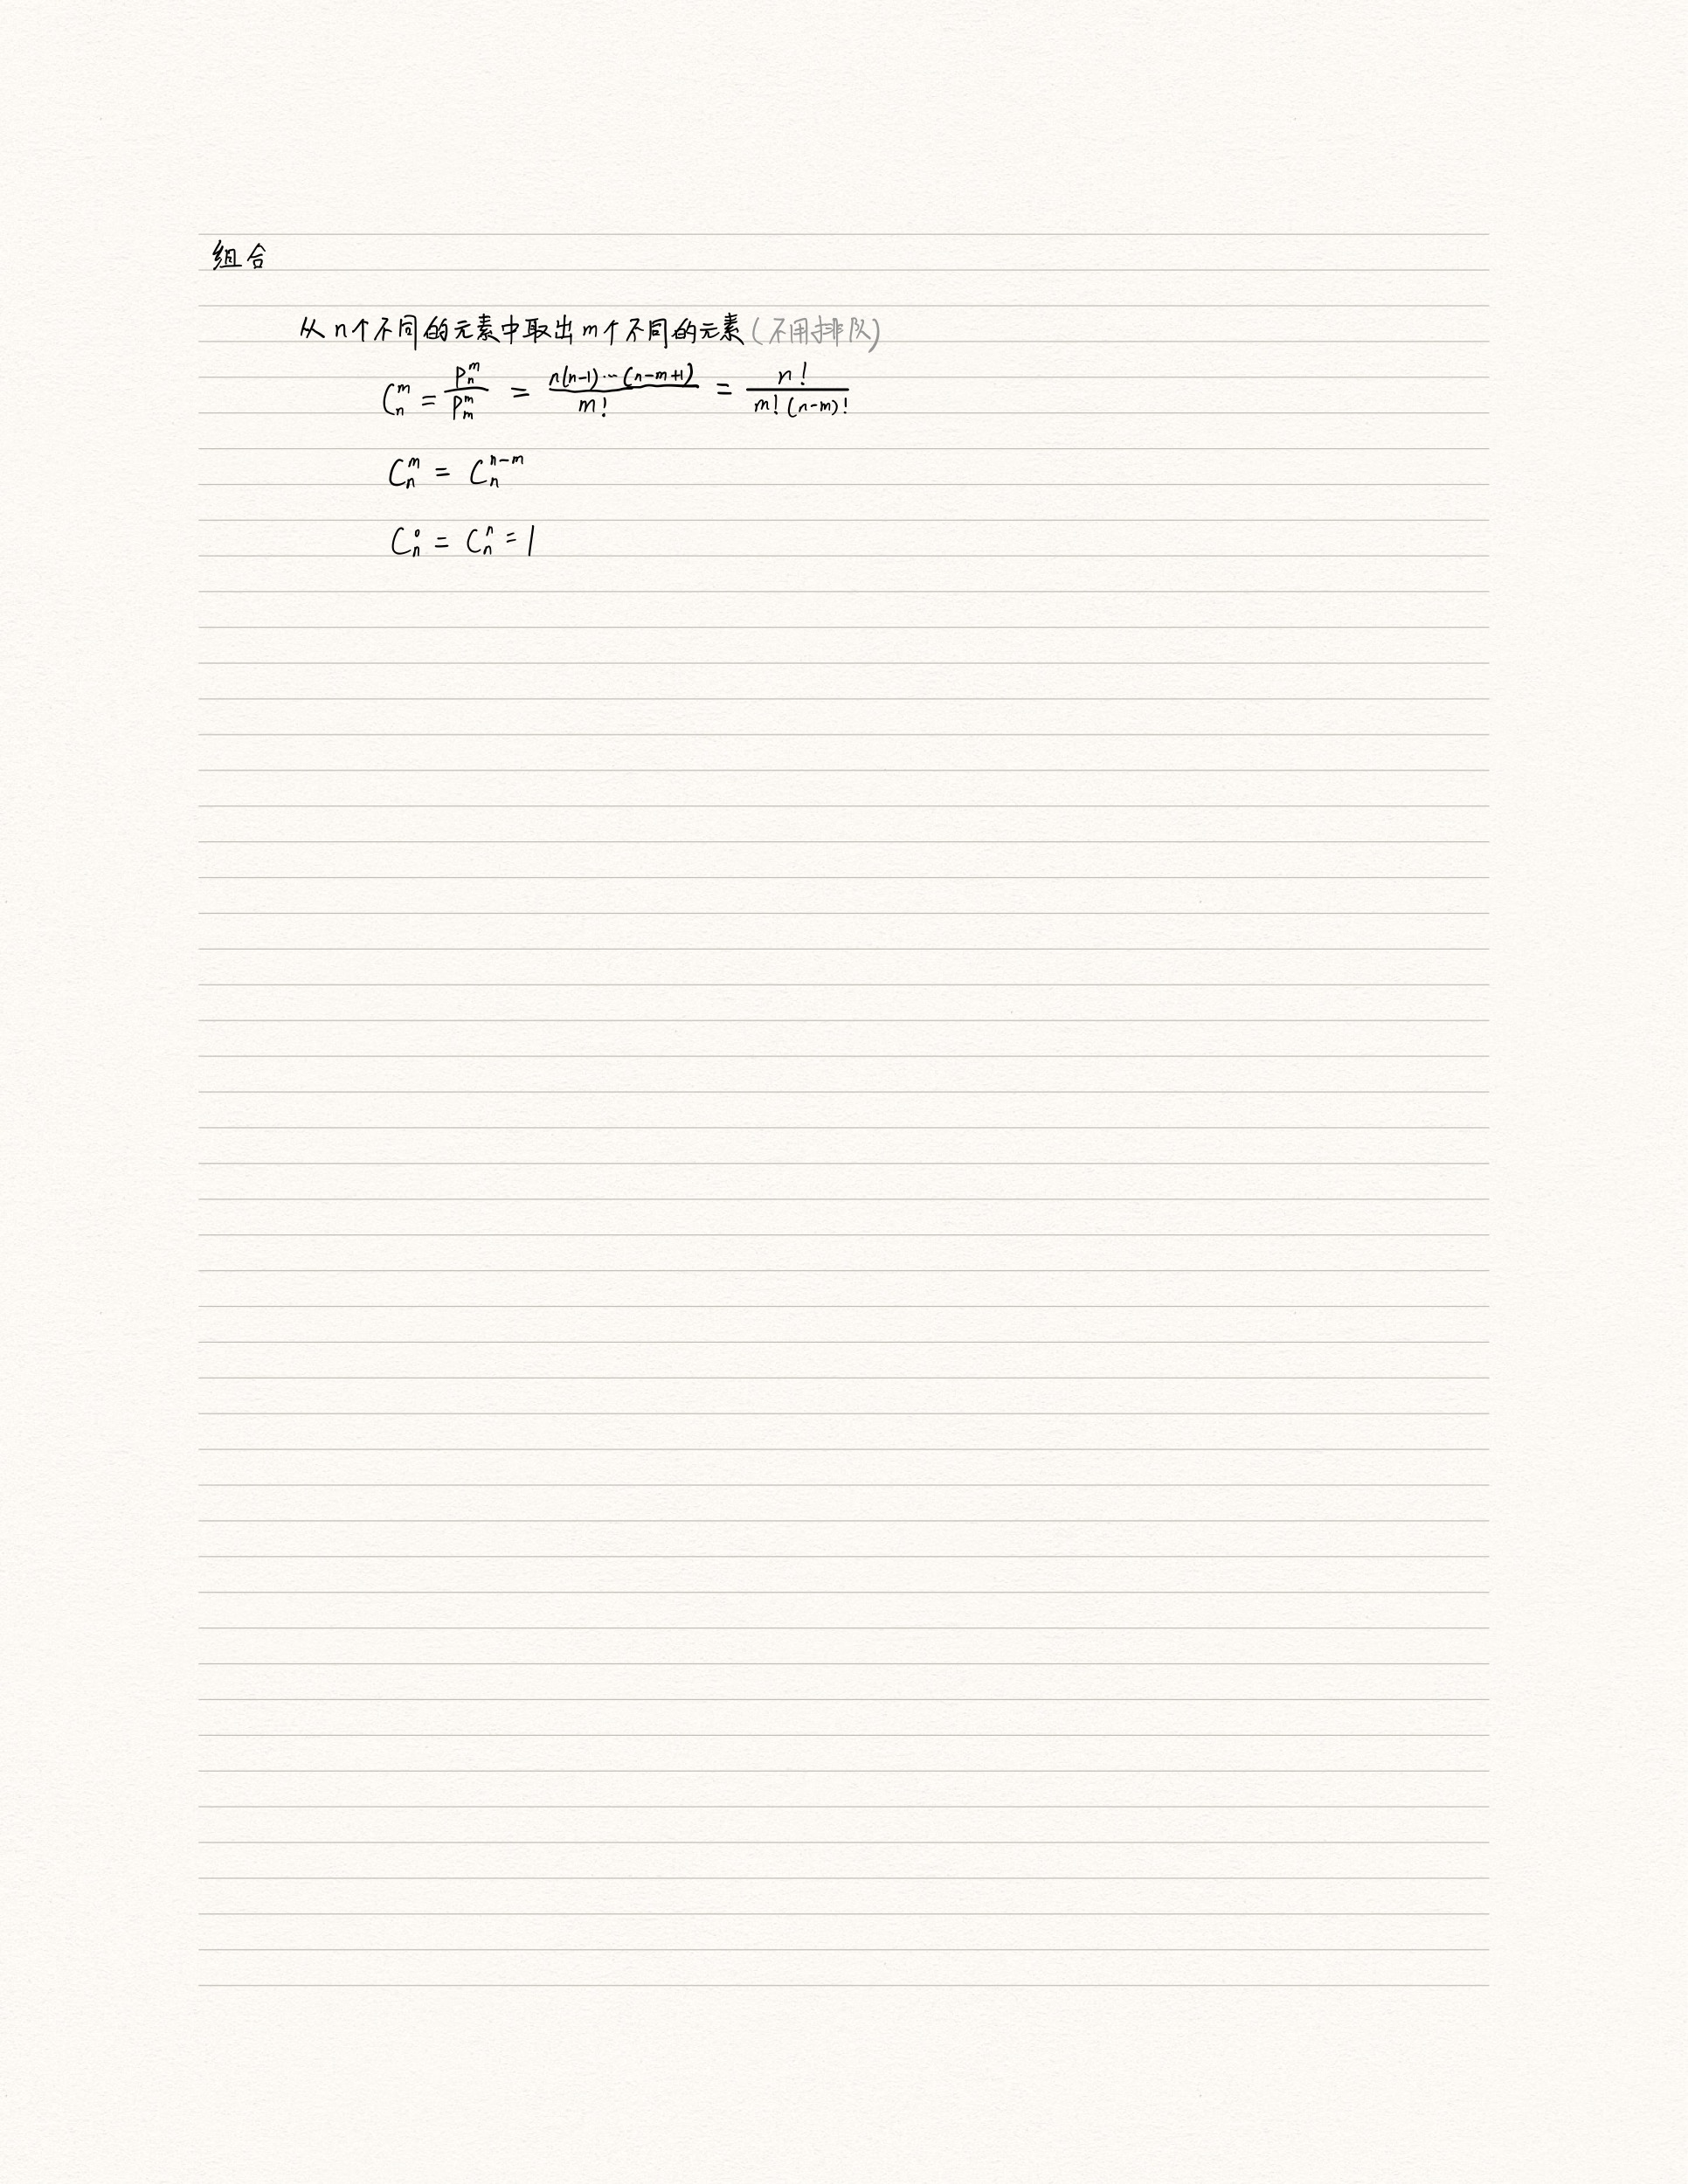 组合
从n个不同的元素中取出m个不同的元素(不用排队)
C_n^m = \frac{P_n^m}{P_m^m} = \frac{n(n-1)\cdots(n-m+1)}{m!} = \frac{n!}{m!(n-m)!}
C_n^m = C_n^{n-m}
C_n^0 = C_n^n = 1